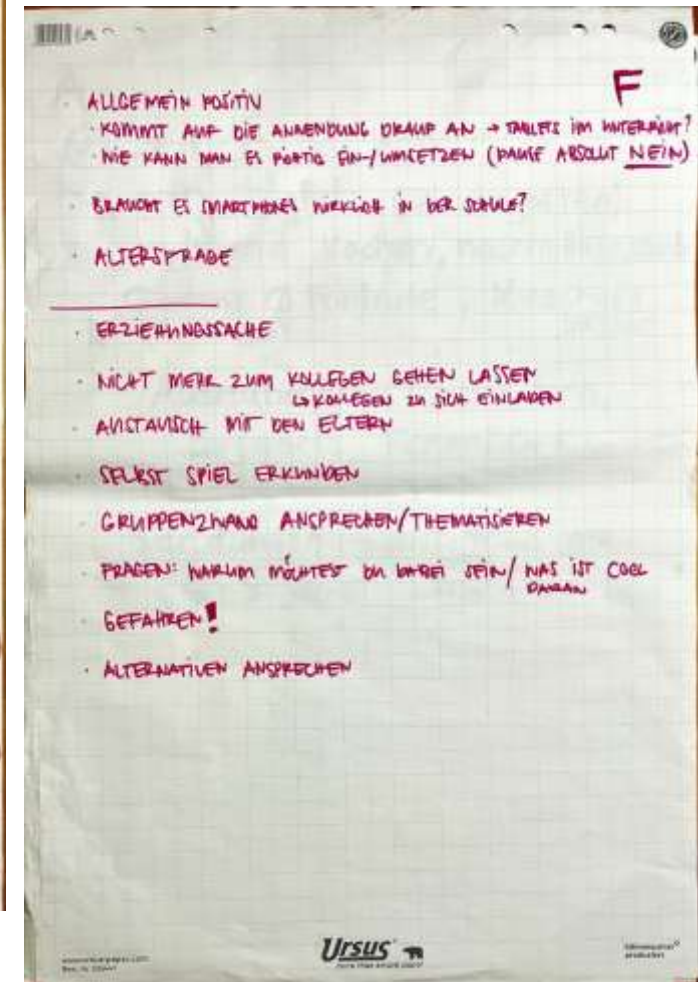 F
· ALLGEMEIN POSITIV
· KOMMT AUF DIE ANWENDUNG DRAUF AN → TABLETS IM UNTERRICHT?
· WIE KANN MAN ES POSITIV EIN-/UMSETZEN (PAUSE ABSOLUT NEIN)
· BRAUCHT ES SMARTPHONES WIRKLICH IN DER SCHULE?
· ALTERSFRAGE
· ERZIEHUNGSSACHE
· NICHT MEHR ZUM KOLLEGEN GEHEN LASSEN
↳ KOLLEGEN ZU SICH EINLADEN
· AUSTAUSCH MIT DEN ELTERN
· SELBST SPIEL ERKUNDEN
· GRUPPENZWANG ANSPRECHEN/THEMATISIEREN
· FRAGEN: WARUM MÖCHTEST DU DABEI SEIN/ WAS IST COOL
DARAN
· GEFAHREN!
· ALTERNATIVEN ANSPRECHEN
Ursus